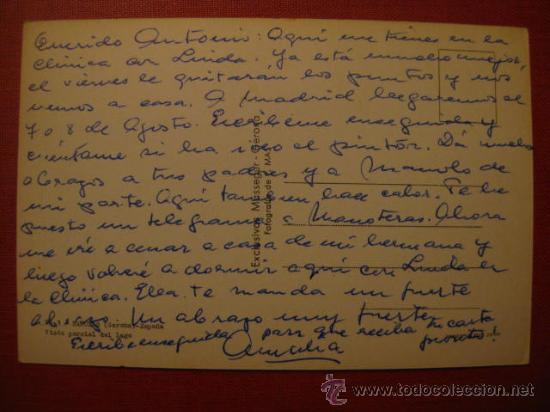 Querido Antonio: Aquí me tienes en la
clinica con Linda. Ya está mucho mejor,
el viernes le quitaran los puntos y nos
vemos a casa. A Madrid llegaremos el
7 o 8 de Agosto. Escribeme enseguida y
cuéntame si ha ido el pintor. Dá muchos
abrazos a tus padres y a Manolo de
mi parte. Aquí tambien hace calor. Te he
puesto un telegrama a Manoteras. Ahora
me iré a cenar a casa de mi hermana y
luego volveré a dormir aquí con Linda en
la Clinica. Ella te manda un fuerte
abrazo. Un abrazo muy fuerte
Amalia
Escribe enseguida para que reciba tu carta
pronto!
Exclusivas Massegur - Gerona
Fotografías de
BAÑOLAS (Gerona)-España
Vista parcial del lago
todocoleccion.net